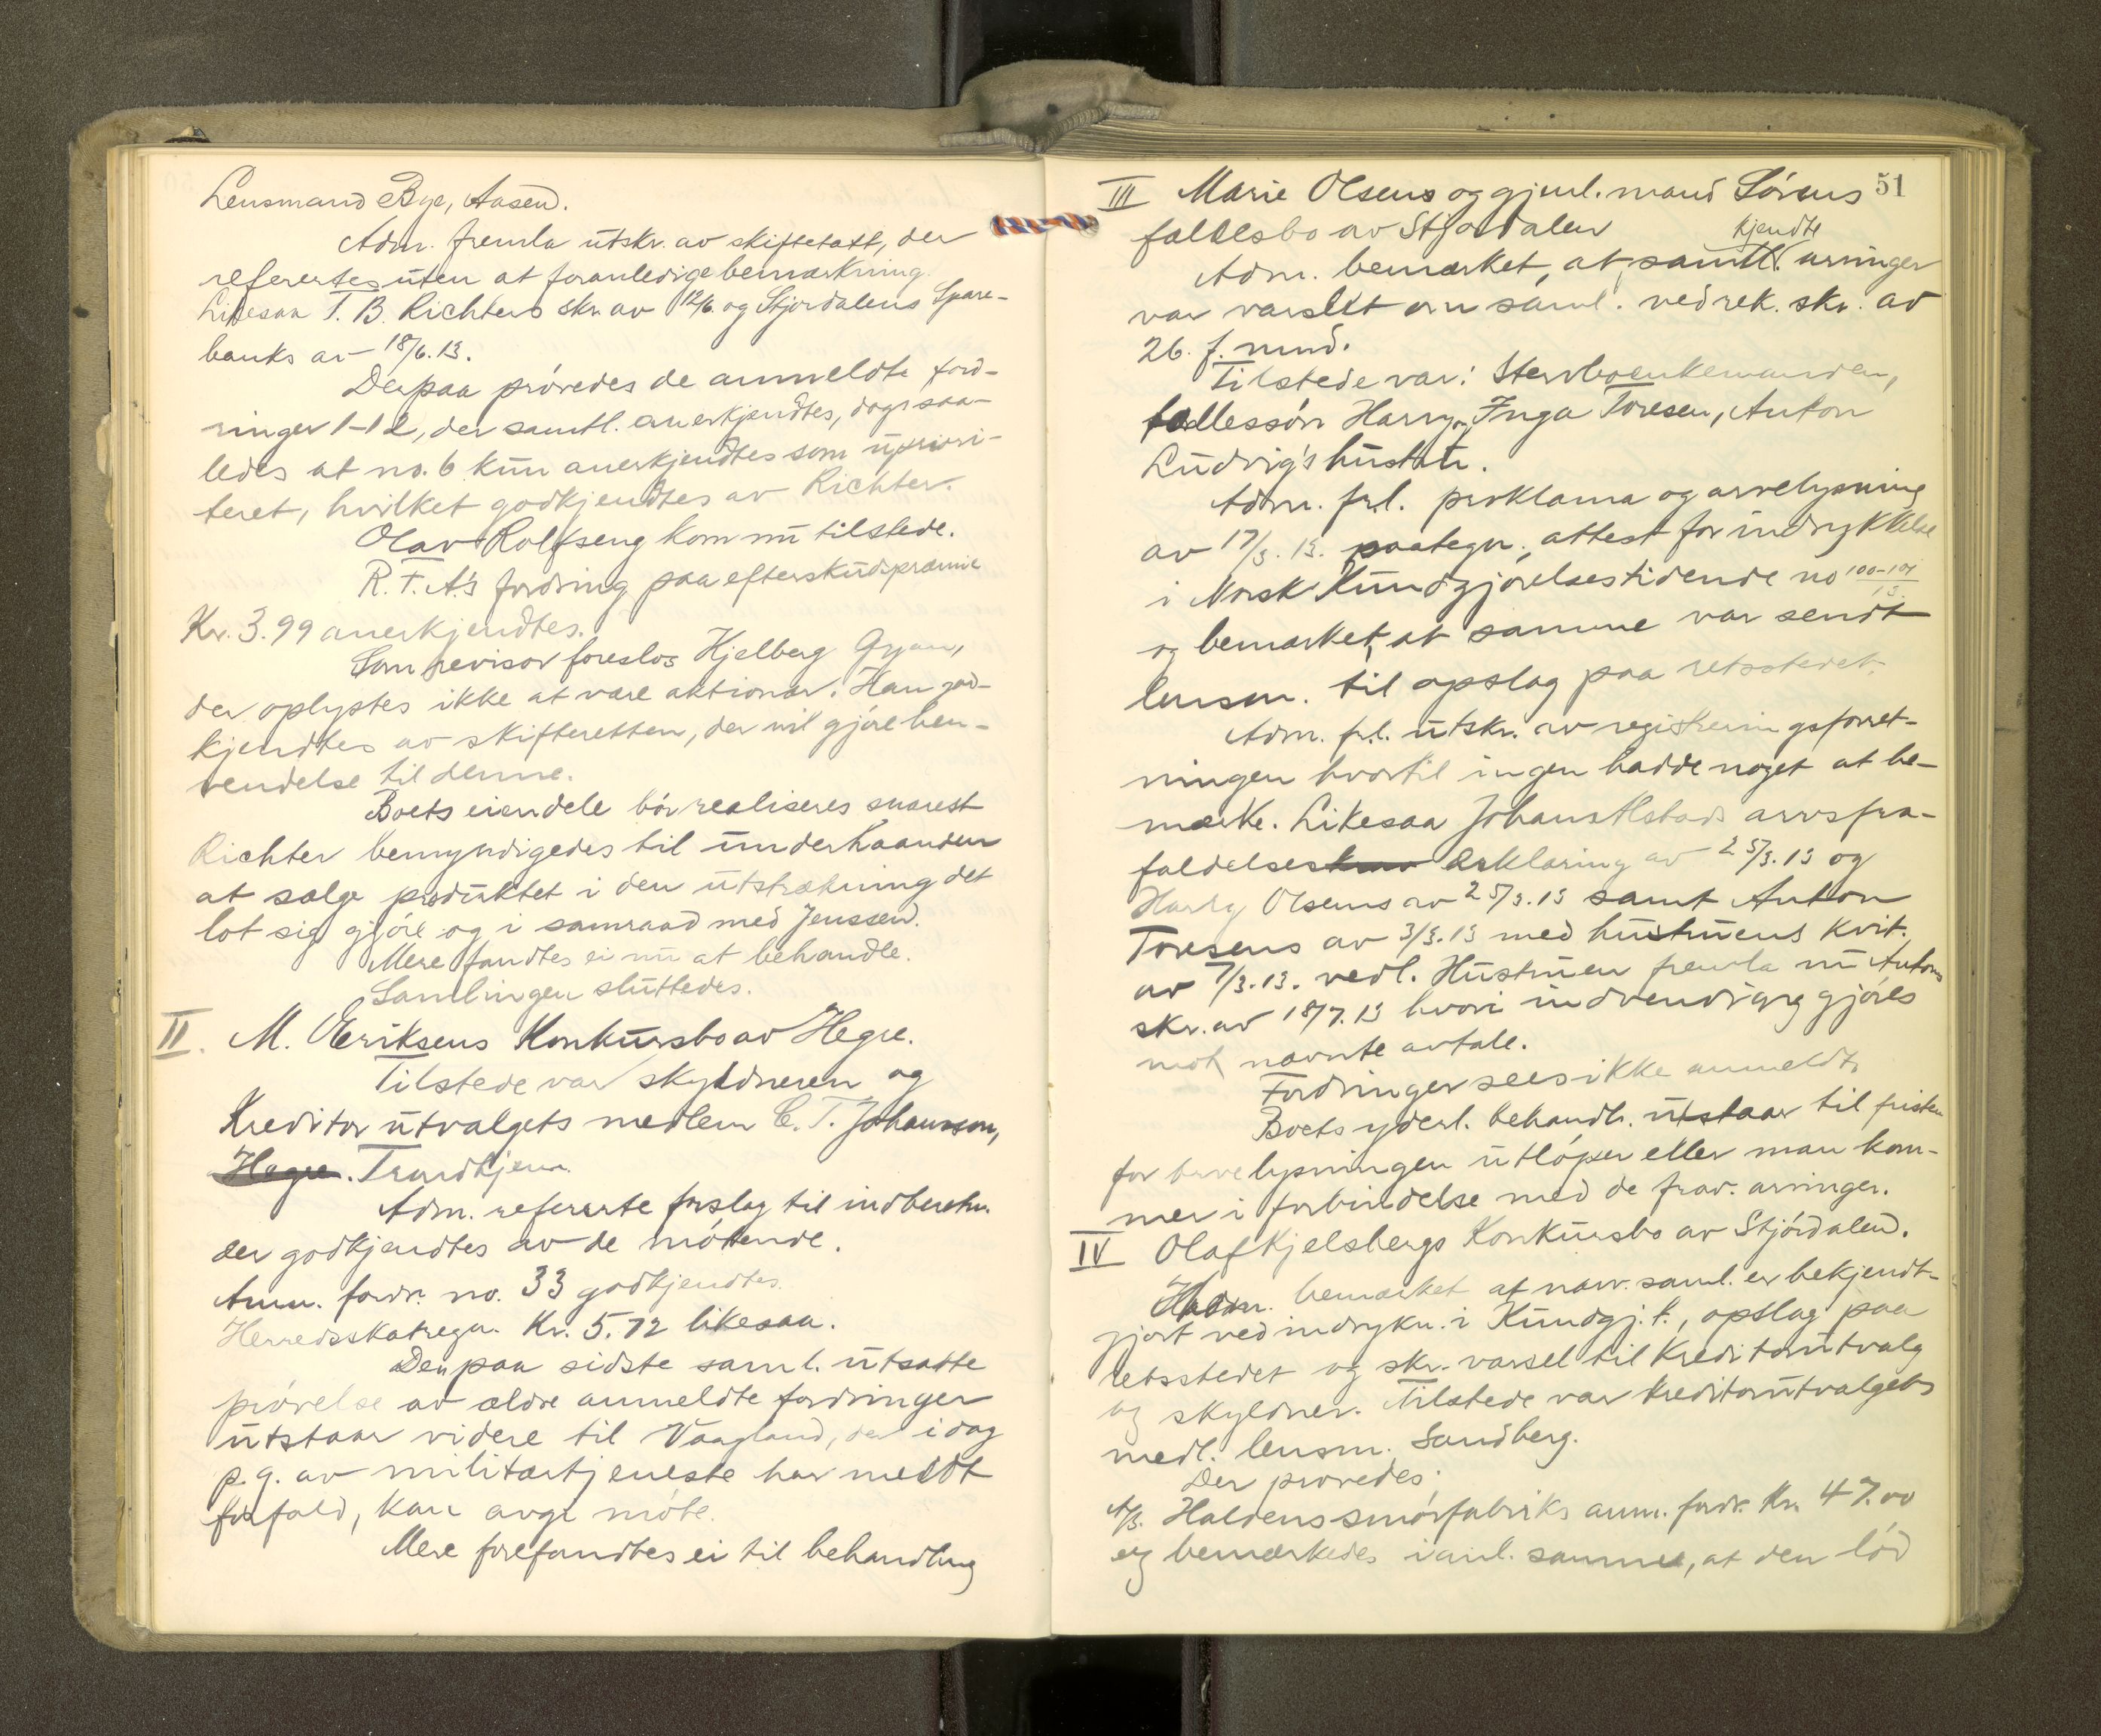 Lensmand Bye, Aasen.
Adm. fremla utskr. av skiftetakt, der
refereres uten at foranledige bemærkning.
Likesaa T. B. Richters skr. av 12/6. og Stjørdalens Spare-
banks av 18/6. 13.
Derpaa prøvedes de anmeldte ford-
ringer 1-12, der samtl. anerkjendtes, dog saa-
ledes at no. 6 kun anerkjendtes som upriori-
teret, hvilket godkjendtes av Richter.
Olav Rolfseng kom nu tilstede.
R. T. A's fordring paa efterskudspræmie
Kr. 3.99 anerkjendtes.
Som revisor foreslog Kjelberg Gyan,
der oplystes ikke at være aktionær. Han god-
kjendtes av skifteretten, der vil gjøre hen-
vendelse til denne.
Boets eiendele bør realiseres snarest
Richter bemyndigedes til underhaanden
at sælge produktet i den utstrækning det
lot sig gjøre og i samraad med Jenssen.
Mere fandtes ei nu at behandle.
Samlingen sluttedes.
II. M. Eriksens Konkursbo av Hegre.
Tilstede var skyldneren og
Kreditorutvalgets medlem C. T. Johansson,
Hegre. Trondhjem.
Adm. refererte forslag til indberetn.
der godkjendtes av de møtende.
Anm. fordr. no. 33 godkjendtes.
Herredsskatregn. Kr. 5.72 likesaa.
Den paa sidste saml. utsatte
prøvelse av ældre anmeldte fordringer
utstaar videre til Vaagland, der idag
p. g. av militærtjeneste har meldt
forfald, kan avgi møte.
Mere forefandtes ei til behandling
51
III Marie Olsens og gjenl. mand Sørens
fællesbo av Stjørdalen
kjendte
Adm. bemærket, at samtl. arvinger
var varslet om saml. ved rek. skr. av
26. f. mnd.
Tilstede var: Stervboenkemanden,
fællessøn Harry, og Inga Toresen, Anton
Ludvig's hustru.
Adm. frl. proklama og arvelysning
av 17/3. 13. paategn., attest for indrykkelse
i Norsk Kundgjørelsestidende no 100-101/13.
og bemærket, at samme var sendt
lensm. til opslag paa retsstedet.
Adm. frl. utskr. av registreringsforret-
ningen hvortil ingen hadde noget at be-
mærke. Likesaa Johans Alstads arvsfra-
faldelseskrav erklæring av 25/3. 13 og
Harry Olsens av 25/3. 13 samt Anton
Toresens av 3/3. 13 med hustruens kvit.
av 7/3. 13. vedl. Hustruen fremla nu Antons
skr. av 18/7. 13 hvori indvending gjøres
mot nævnte avtale.
Fordringer sees ikke anmeldt.
Boets yderl. behandl. utstaar til fristen
for arvelysningen utløper eller man kom-
mer i forbindelse med de frav. arvinger.
IV Olaf Kjelsbergs Konkursbo av Stjørdalen.
Adm. bemærket at nærv. saml. er bekjendt-
gjort ved indrykn. i Kundgj. t., opslag paa
retsstedet og skr. varsel til Kreditorutvalg
og skyldner. Tilstede var kreditorutvalgets
medl. lensm. Sandberg.
Der prøvedes:
A/S. Haldens smørfabriks anm. fordr. Kr. 47.00
og bemærkedes i anl. samme, at den lød